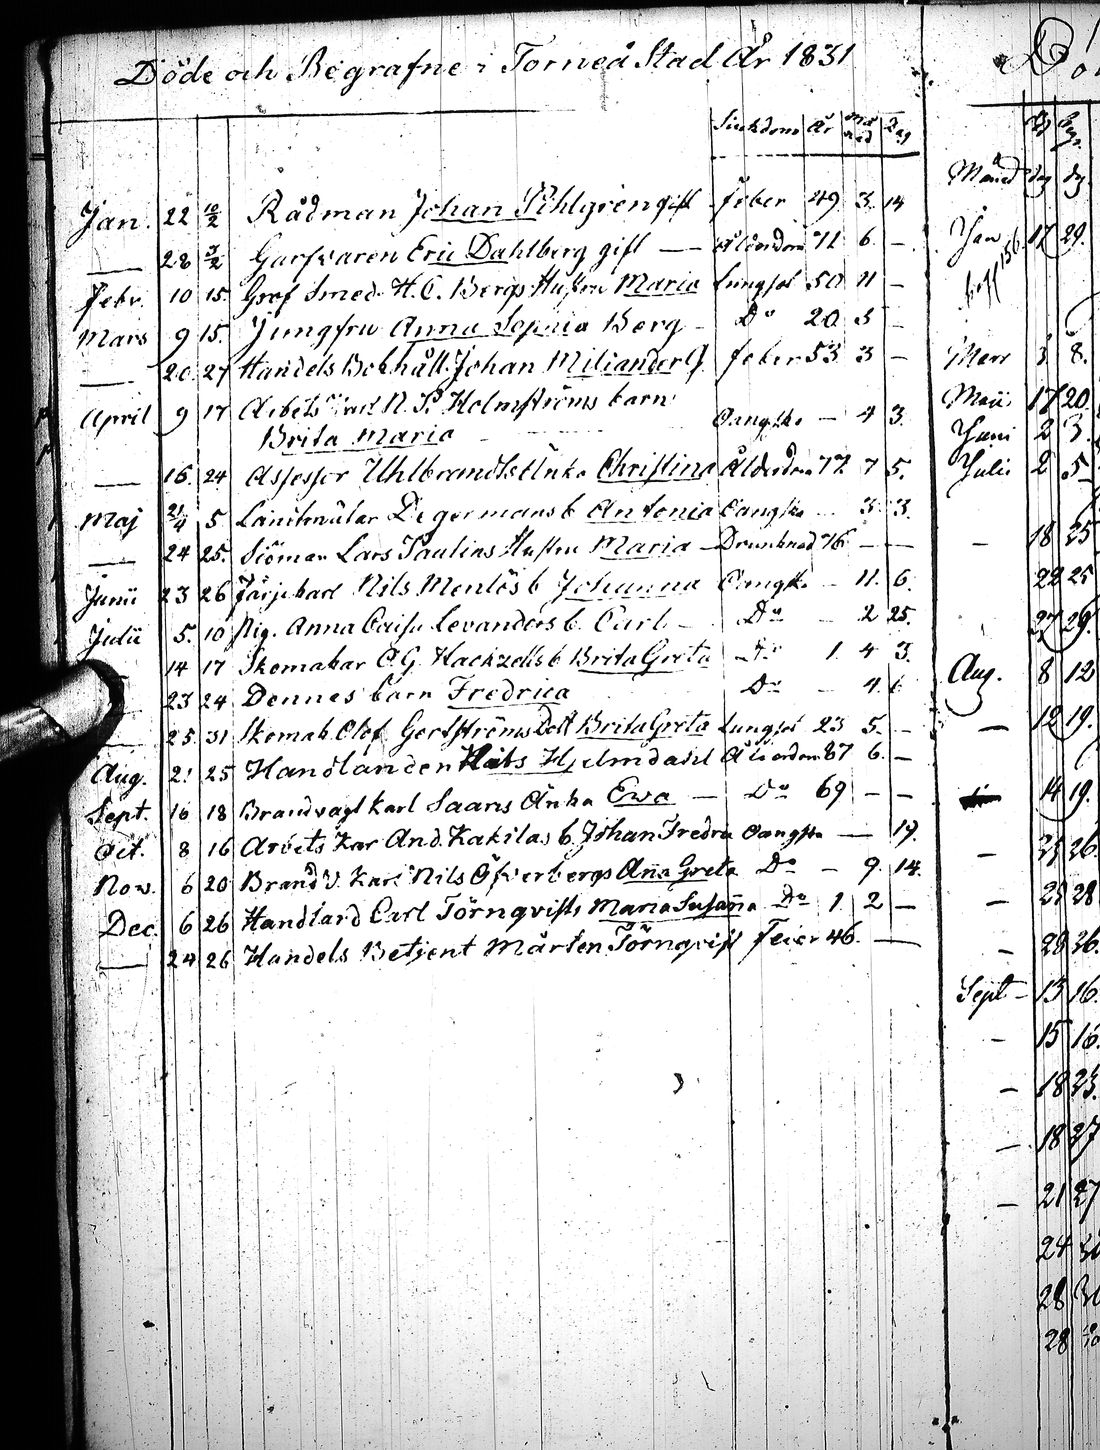 Döde och Begrafne i Torneå Stad År 1831
Siukdom År Månad Dag
Jan. 22 10/2 Rådman Johan Pihlgren gift feber 49 3 14
— 28 3/2 Garfvaren Eric Dahlberg gift — ålderdom 71 6 —
Febr. 10 15. Grof Smed. H. C. Bergs Hustru Maria Lungsot 50 11 —
Mars 9 15. Jungfru Anna Sophia Berg — Do 20 3 —
— 20 27 Handels Bokhåll. Johan Miliander G. feber 53 3 —
April 9 17 N. P. Holmströms barn
Brita Maria — — — 4 3.
— 16. 24 Assessor Uhlbrandts Änka Christina Ålderdom 77 7 5.
Maj 21/4 5 Degermans b Antonia — 3 3.
— 24 25. Siöman Lars Paulins Hustru Maria — Drunknad 76 — —
Junii 23 26 Färjekarl Nils Menlös b Johanna — 11. 6.
Julii 5. 10 Pig. Anna Caisa Levanders b. Carl — Do — 2 25.
14 17 Skomakar C. G. Hackzells b Brita Greta Do 1 4 3.
23 24 Dennes barn Fredrica Do — 4
— 25. 31 Skomak. Olof Gertströms Dott Brita Greta Lungsot 23 5. —
Aug. 21 25 Handlanden Mats Hjelmdahl Ålderdom 87 6. —
Sept. 16 18 Brandvagt Karl Saaris Änka Ewa — Do 69 — —
Oct. 8 16 Arbets Kar And. Kakilas b. Johan Fredric — 17.
Nov. 6 20 Brand V. Karl Nils Öfverbergs Anna Greta Do — 9. 14.
Dec. 6 26 Handland Carl Törnqvists Maria Susanna Do 1 2 —
— 24 26 Handels Betjent Mårten Törnqvist Feber 46. —
Månad Dag
Jan 17 29.
Mars 3 8.
Maii 17 20
Juni 2 3.
Julii 2 5
— 18 25
22 25
27 29.
Aug. 8 12
— 12 19.
14 19.
— 25 26.
— 25 28
— 29 36.
Sept — 13 16.
— 15 16.
— 18 23.
— 18 27
— 21 27
24
28
28